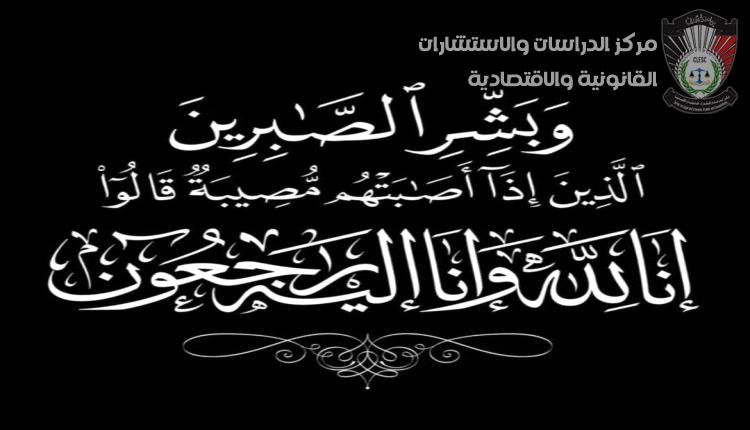 مركز الدراسات والاستشارات
القانونية والاقتصادية
CLESC
وَبَشِّرِ ٱلصَّـٰبِرِينَ
ٱلَّذِينَ إِذَآ أَصَـٰبَتْهُم مُّصِيبَةٌ قَالُوٓا۟
إنا لله وإنا إليه راجعون